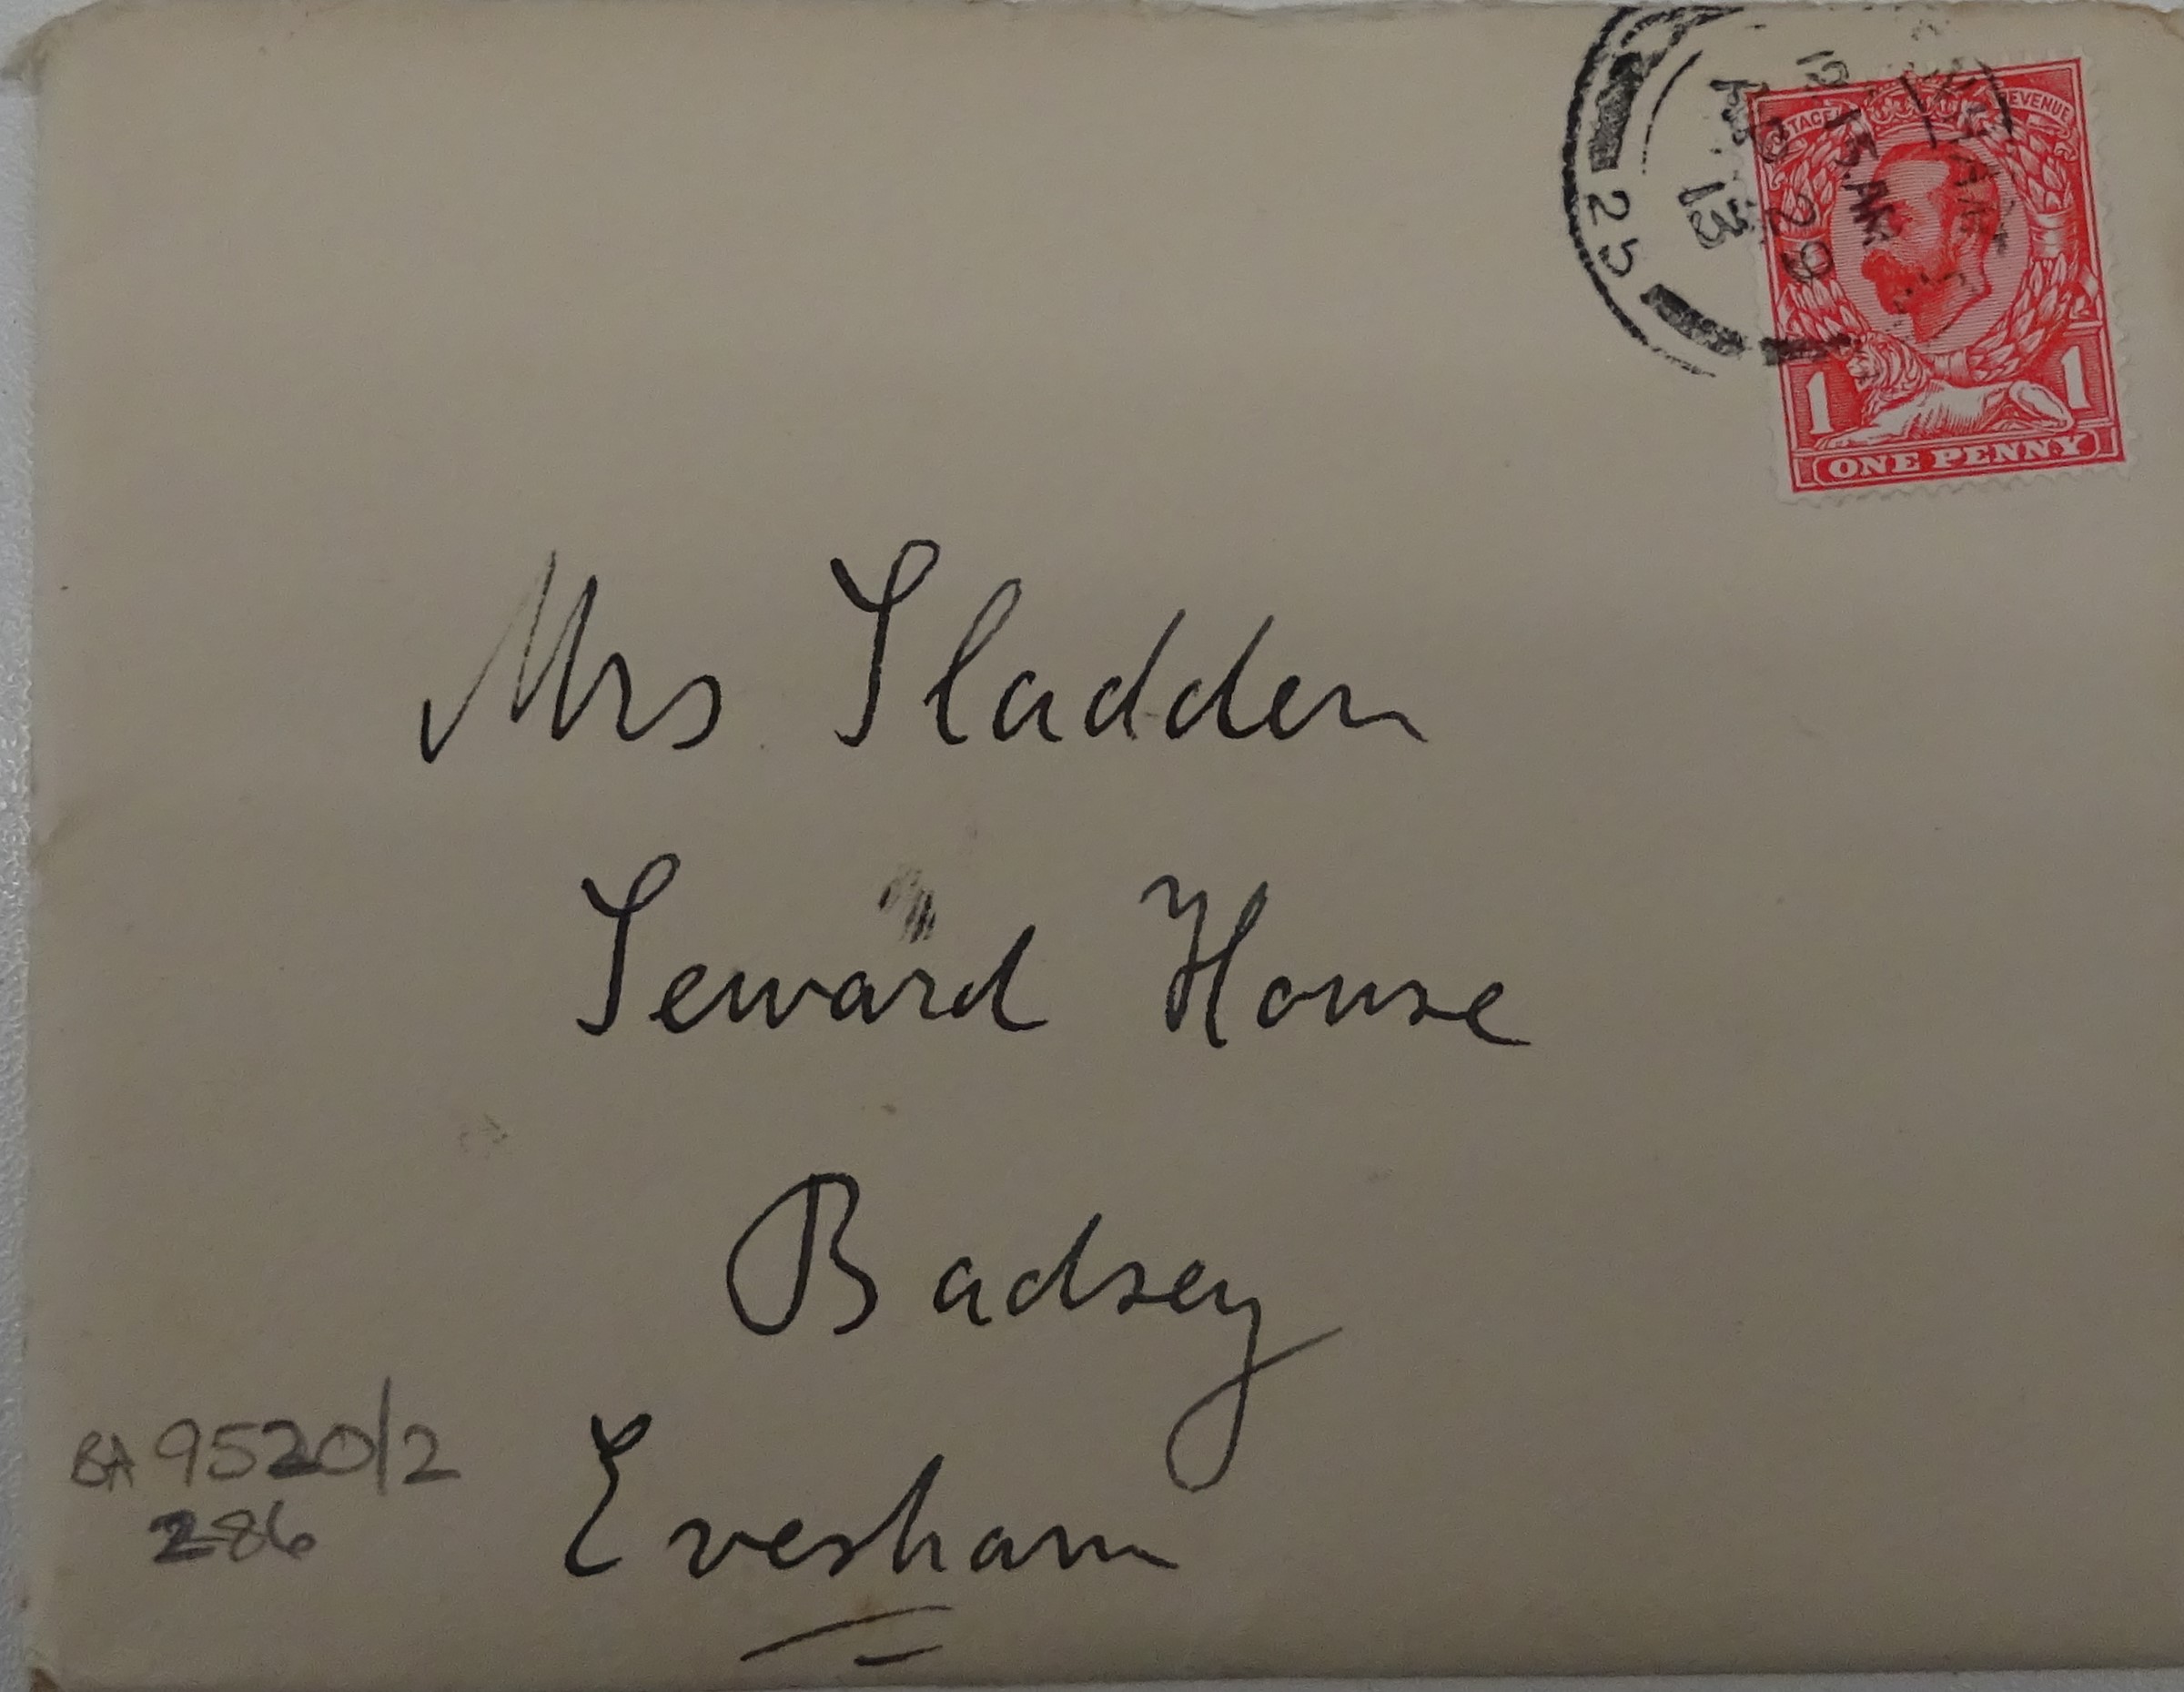 POSTAGE REVENUE
12.15.AM
AP 29
13
25
1 1
ONE PENNY
Mrs Sladden
Seward House
Badsey
Evesham
BA 9520/2
286